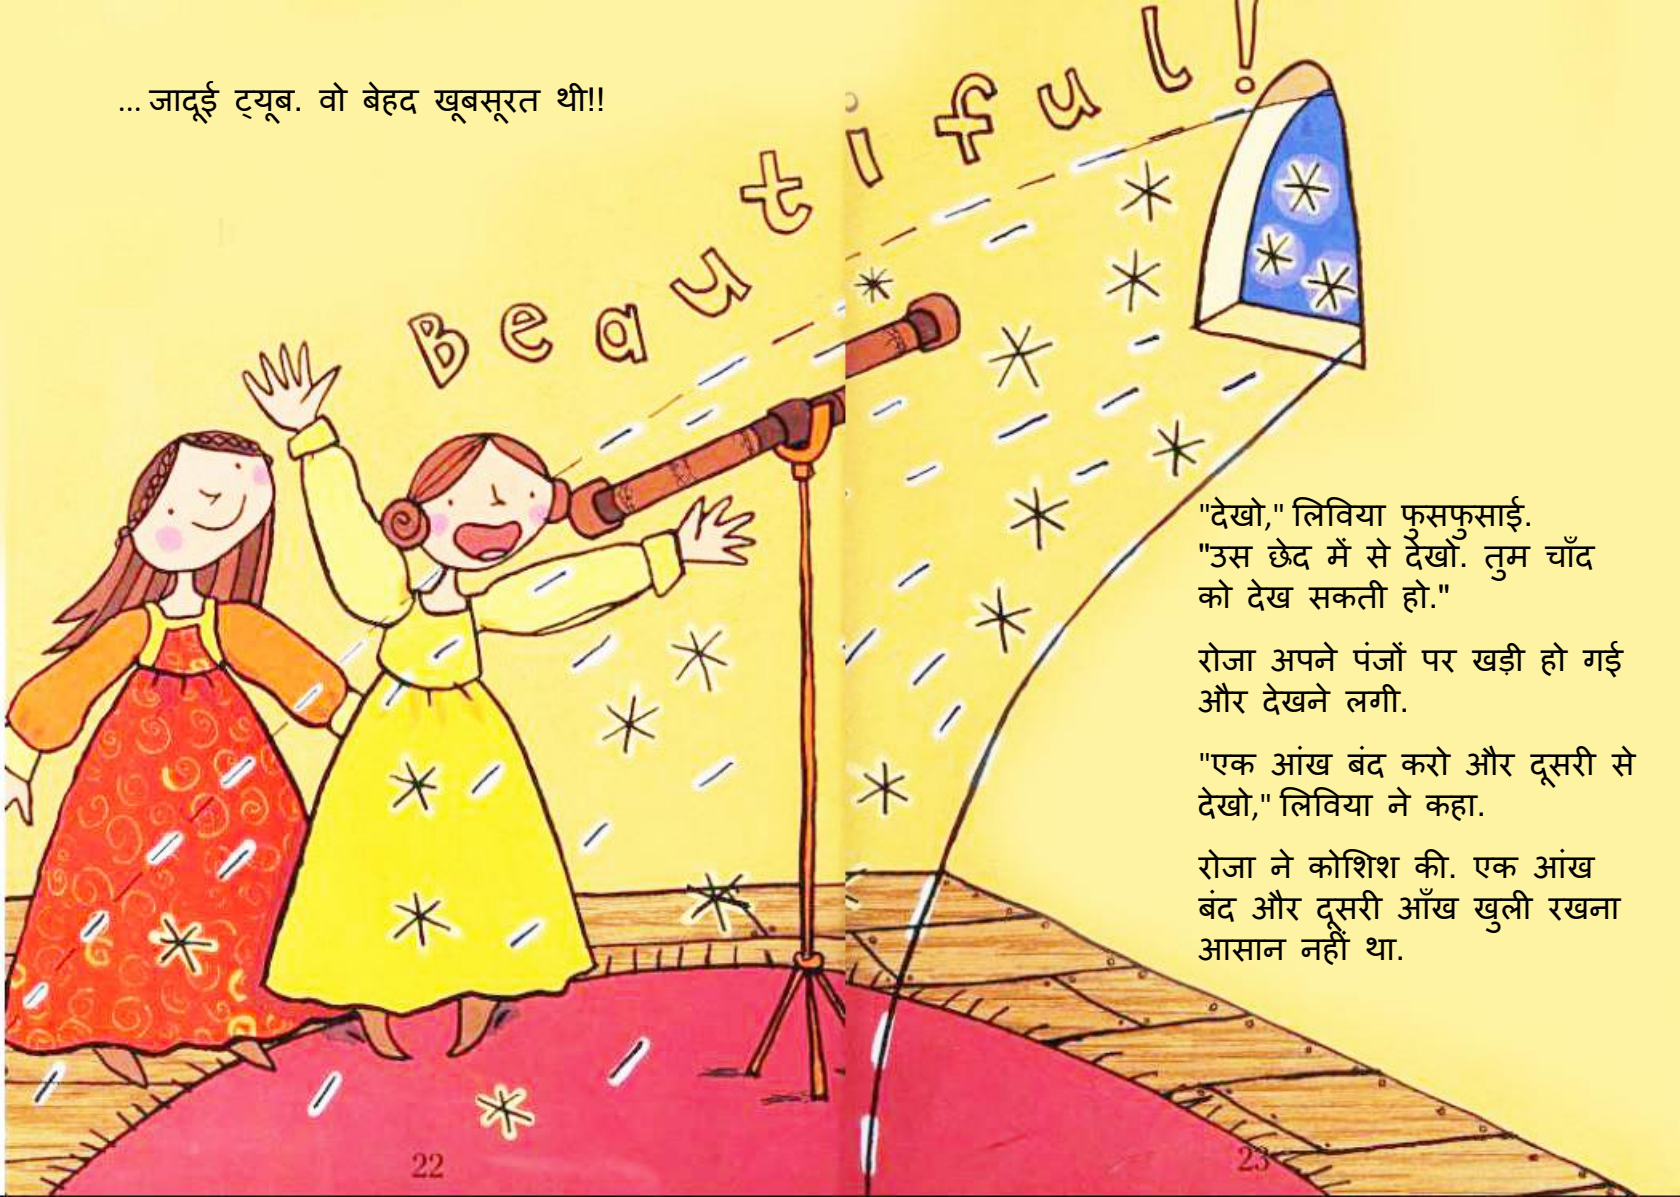 ... जादूई ट्यूब. वो बेहद खूबसूरत थी!!
Beautiful!
"देखो," लिविया फुसफुसाई.
"उस छेद में से देखो. तुम चाँद
को देख सकती हो."
रोजा अपने पंजों पर खड़ी हो गई
और देखने लगी.
"एक आंख बंद करो और दूसरी से
देखो," लिविया ने कहा.
रोजा ने कोशिश की. एक आंख
बंद और दूसरी आँख खुली रखना
आसान नहीं था.
22
23